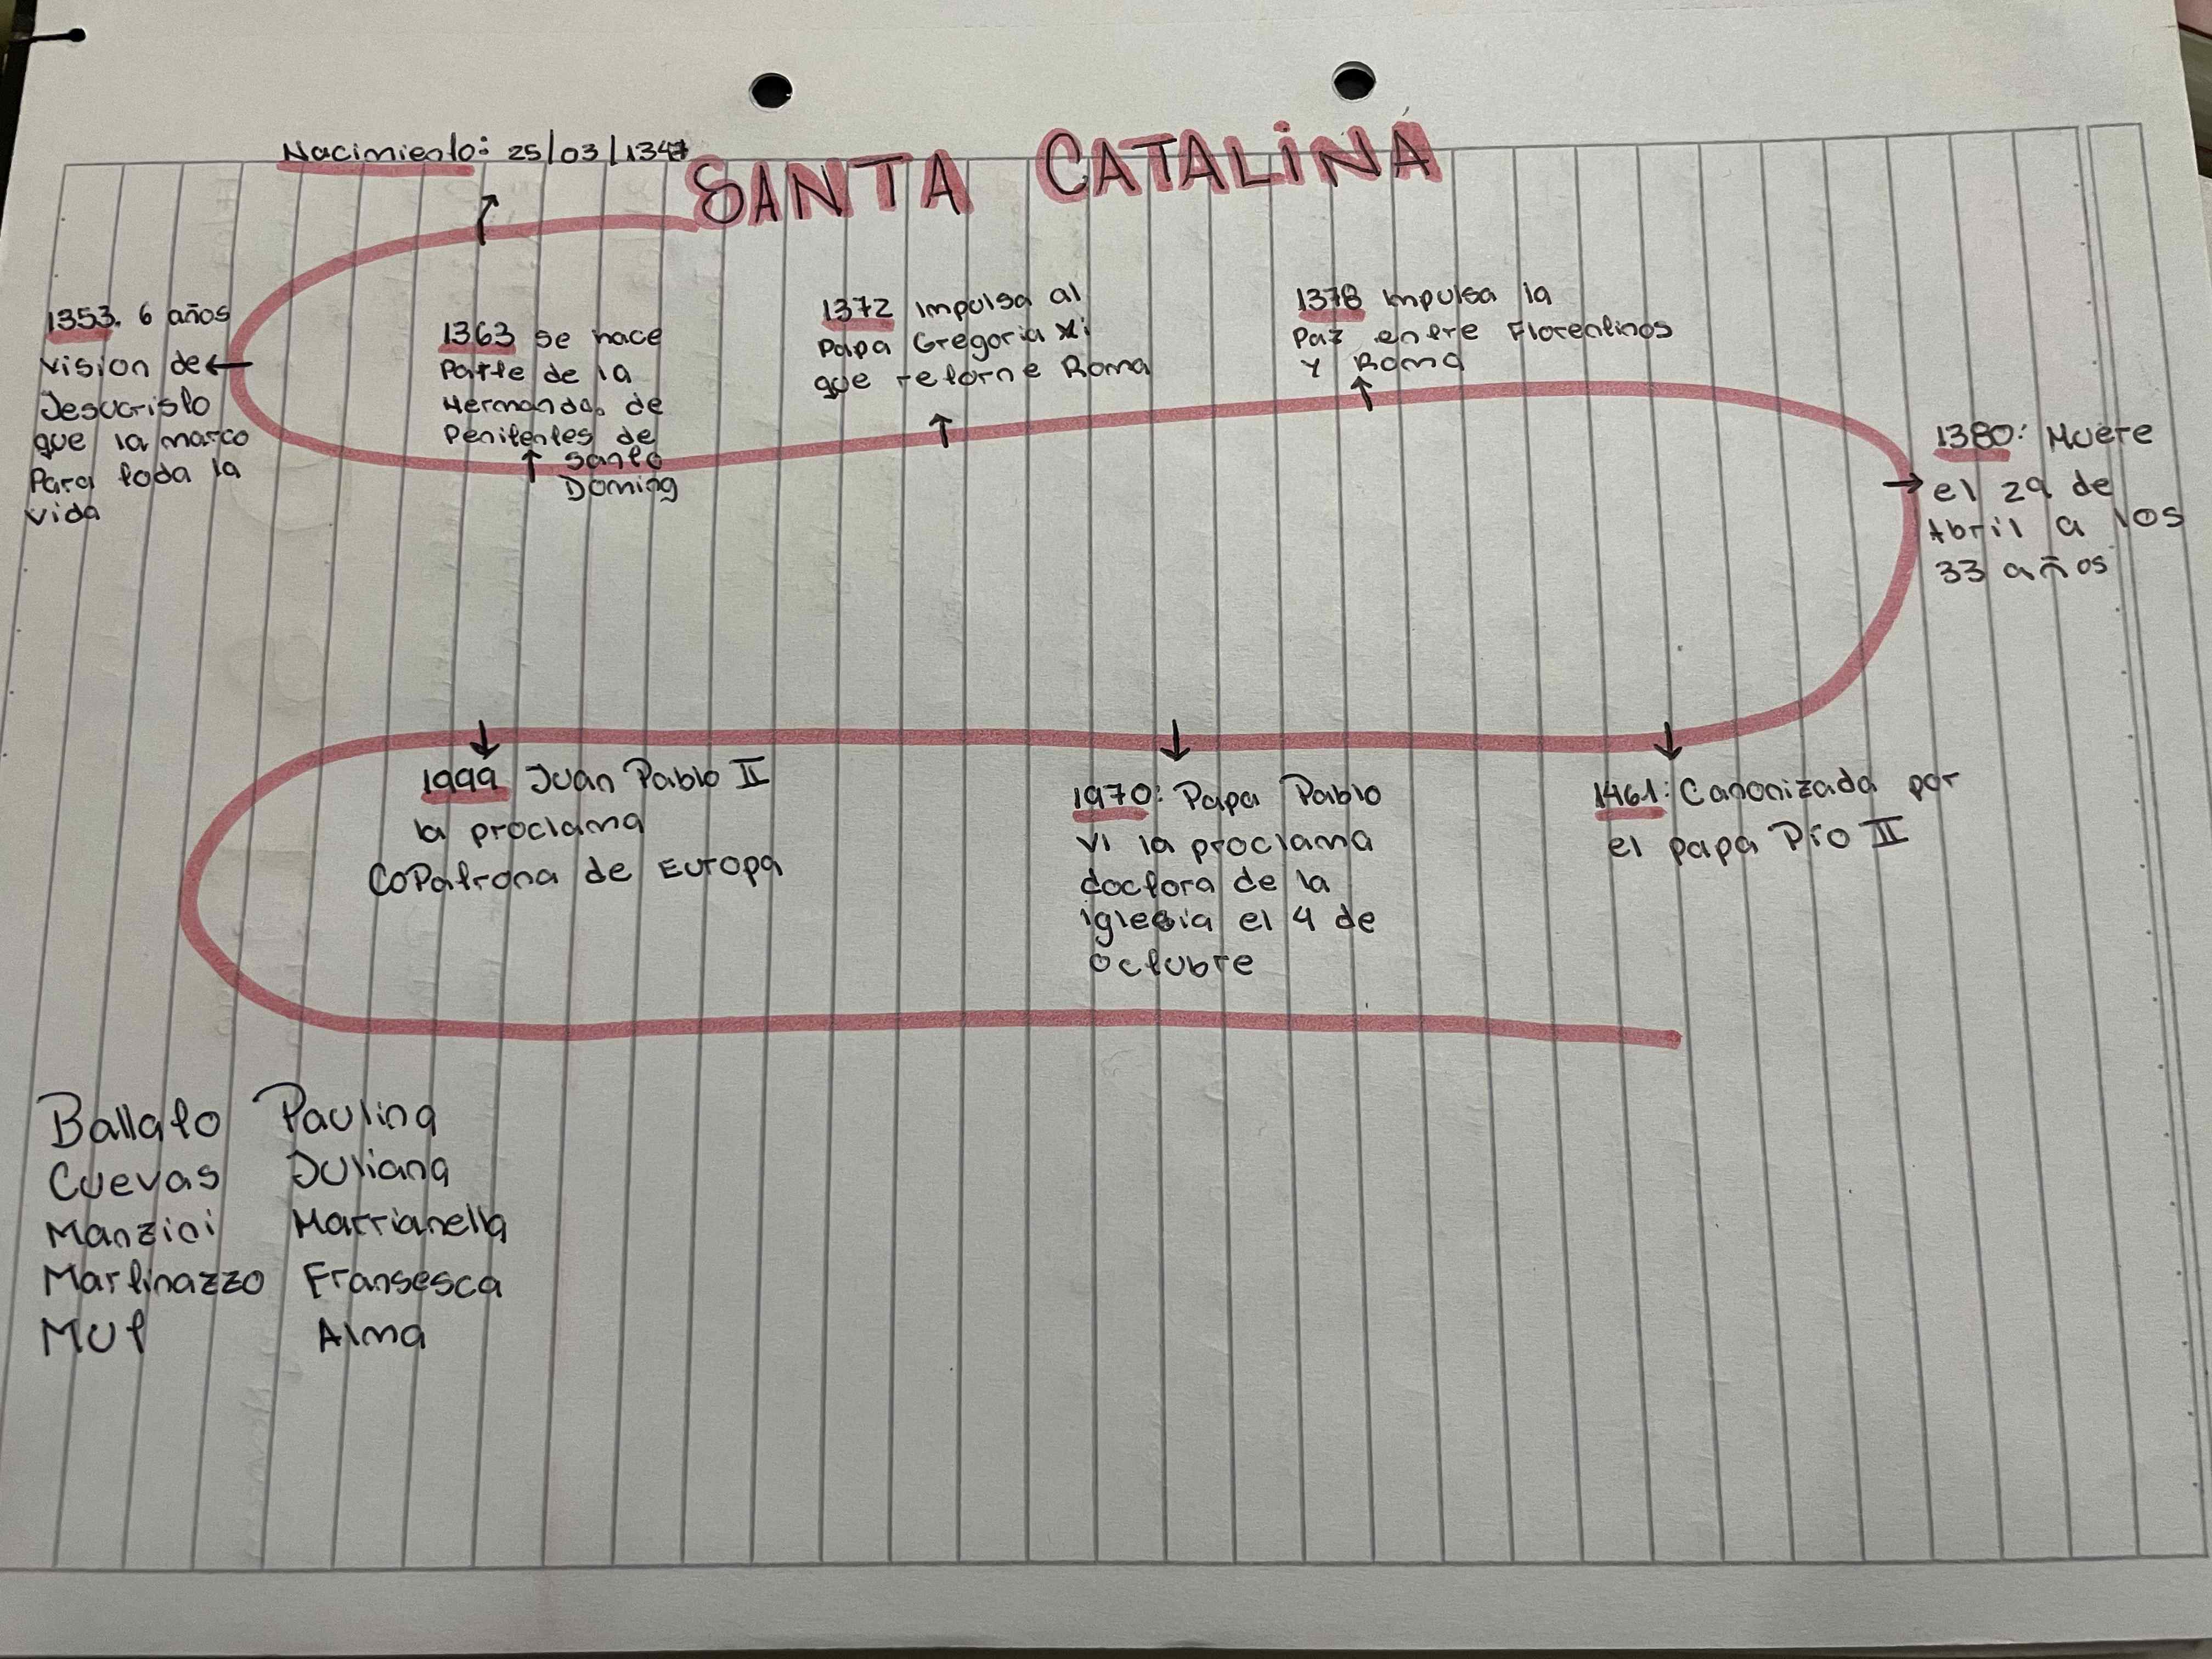 SANTA CATALINA
Nacimiento: 25/03/1347
1353. 6 años
vision de
Jesucristo
que la marco
Para toda la
vida
1363 se hace
Parte de la
Hermandad de
Penitentes de
Santo
Doming
1372 Impulsa al
Papa Gregoria XI
que retorne Roma
1378 Impulsa la
Paz entre Florentinos
y Roma
1380: Muere
el 29 de
Abril a los
33 años
1461: Canonizada por
el papa Pío II
1970: Papa Pablo
VI la proclama
doctora de la
iglesia el 4 de
octubre
1999 Juan Pablo II
la proclama
CoPatrona de Europa
Ballato Paulina
Cuevas Juliana
Manzini Marrianella
Martinazzo Fransesca
Mut Alma